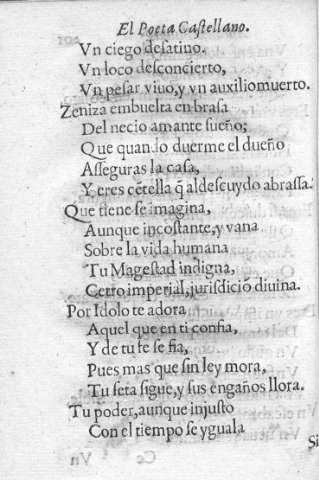 El Poeta Castellano.
Vn ciego desatino.
Vn loco desconcierto,
Vn pesar viuo, y vn auxilio muerto.
Zeniza embuelta en brasa
Del necio amante sueño;
Que quando duerme el dueño
Asseguras la casa,
Y eres cētella q̄ al descuydo abrassa.
Que tiene se imagina,
Aunque incōstante, y vana
Sobre la vida humana
Tu Magestad indigna,
Cetro imperial, jurisdiciō diuina.
Por Idolo te adora
Aquel que en ti confia,
Y de tu fe se fia,
Pues mas que sin ley mora,
Tu seta sigue, y sus engaños llora.
Tu poder, aunque injusto
Con el tiempo se yguala
Si